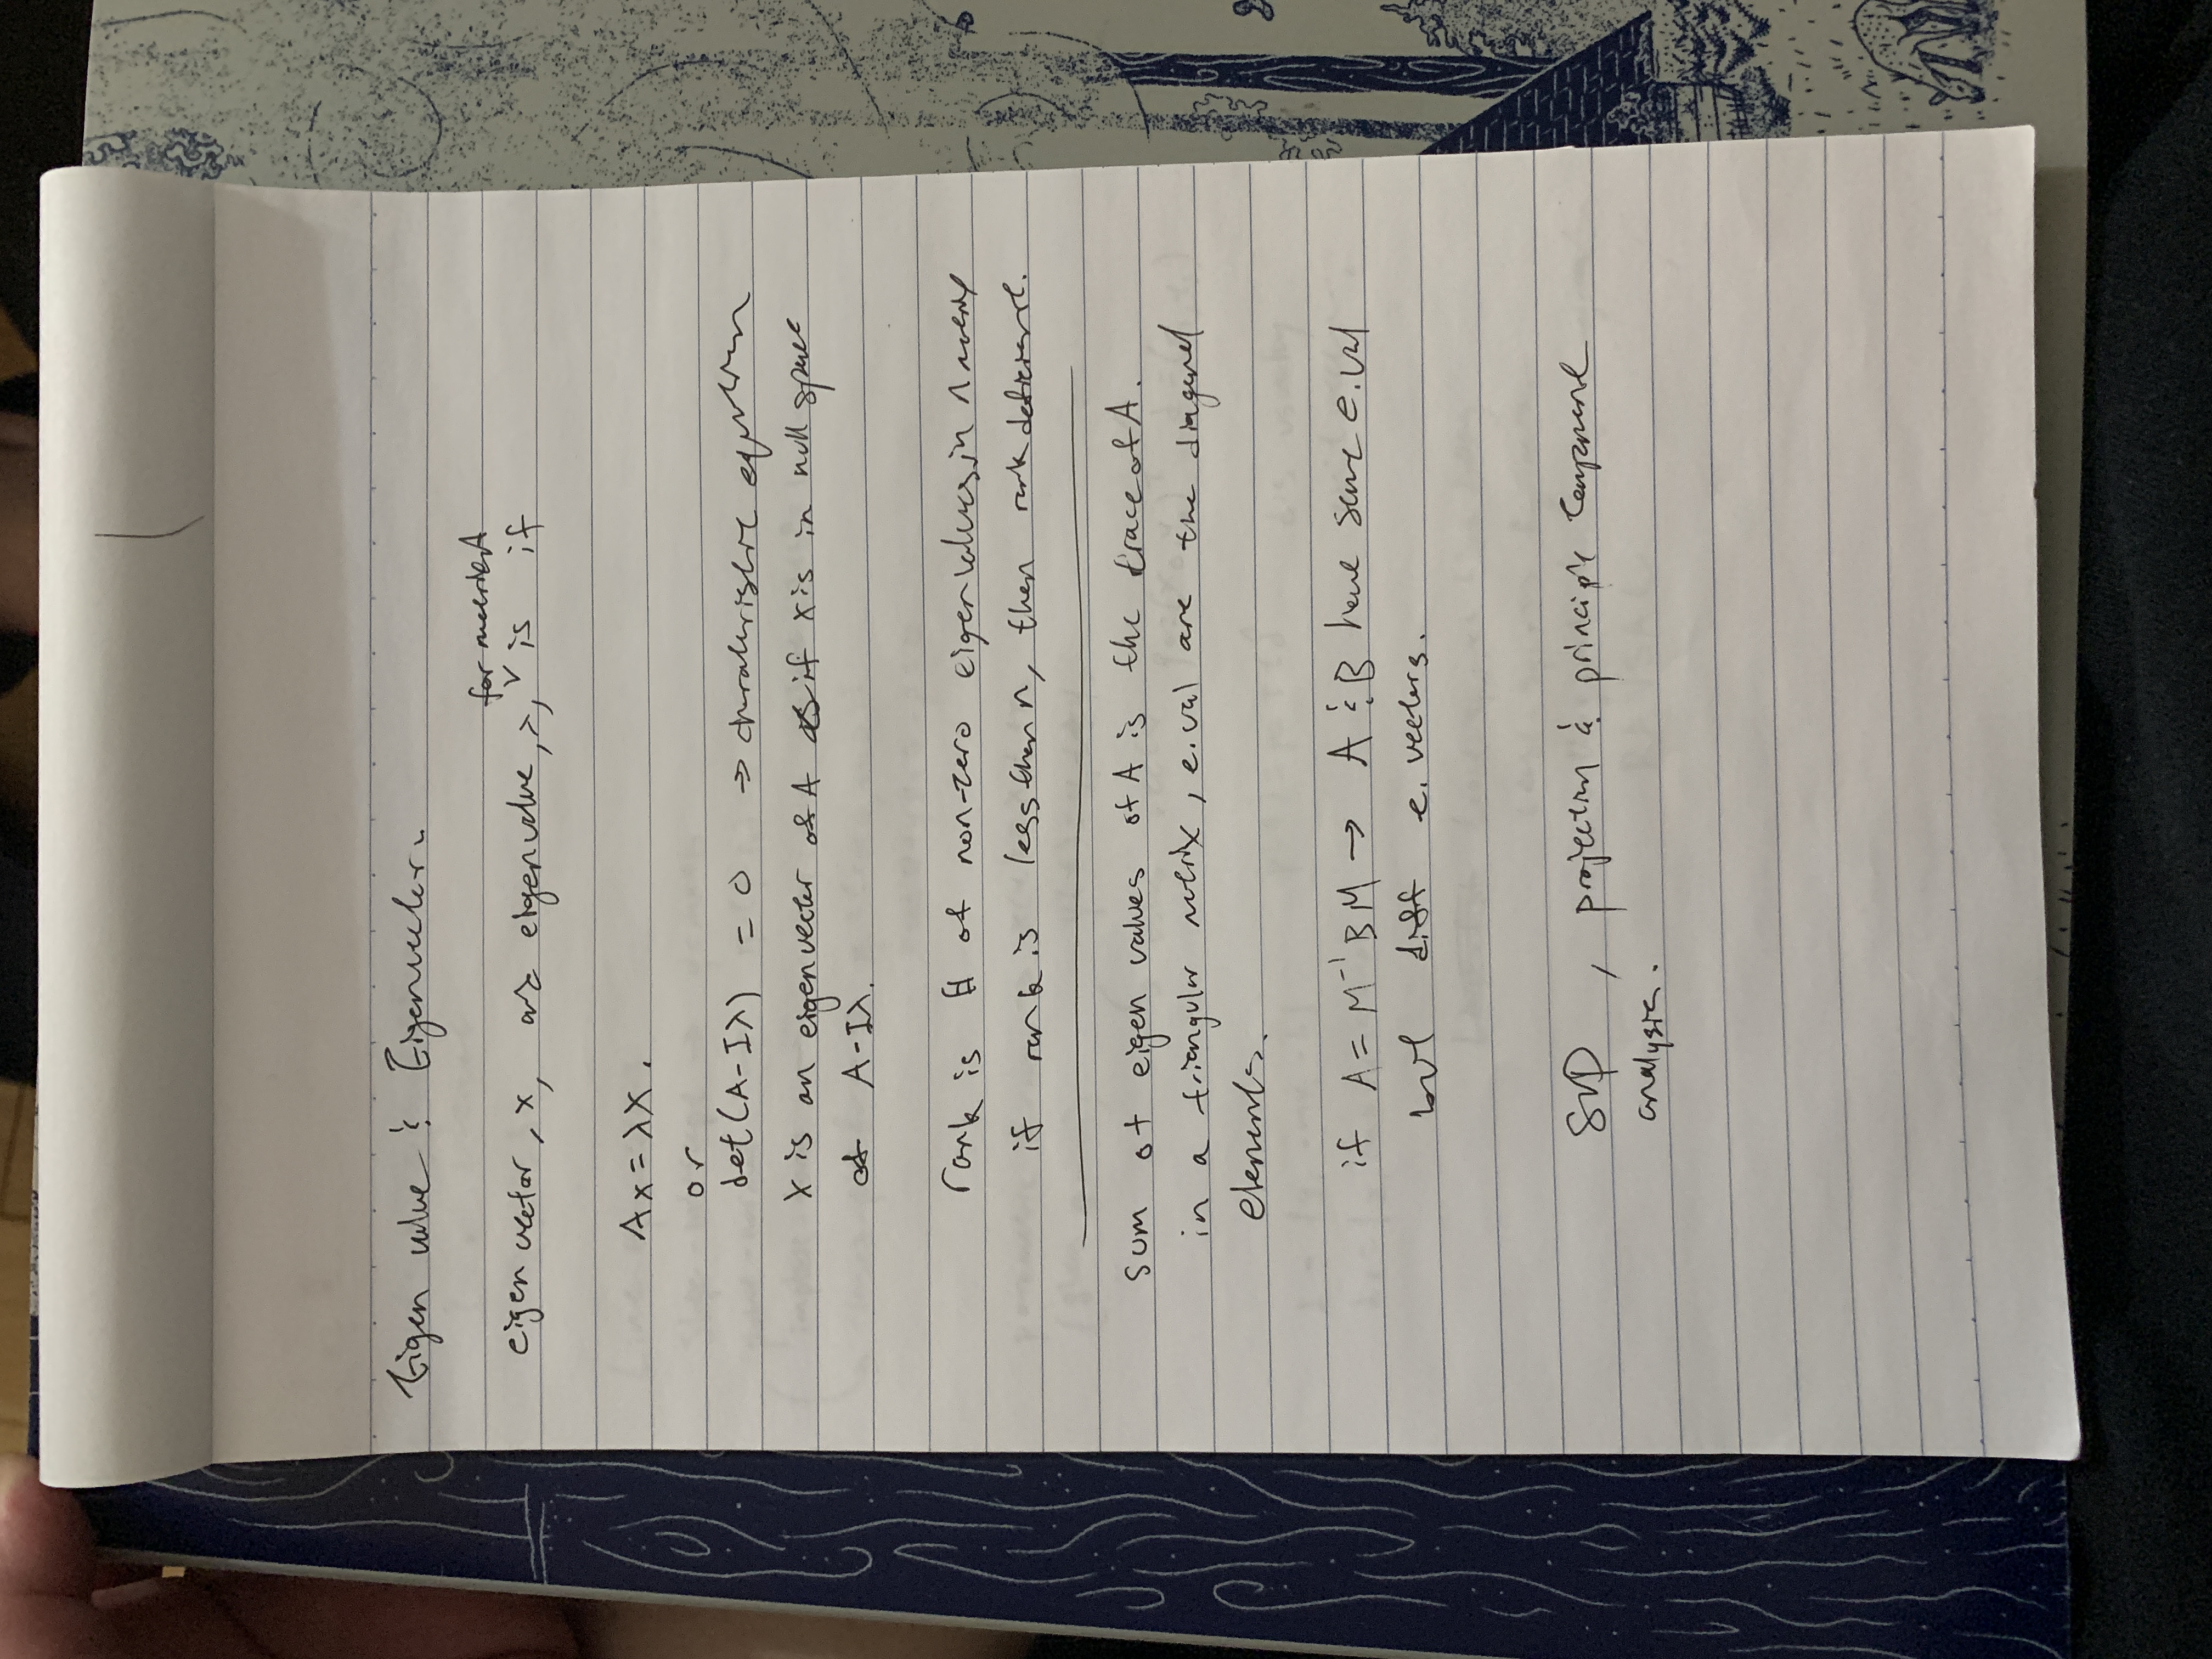 Eigen value & Eigenvector.
for matrix A
eigen vector, x, and eigenvalue, λ, is if
Ax = λx.
or
det(A-Iλ) = 0 → characteristic equation
x is an eigenvector of A if x is in null space
of A-Iλ.
rank is # of non-zero eigenvalues in n matrix
if rank is less than n, then rank deficient.
sum of eigen values of A is the trace of A.
in a triangular matrix, e.val are the diagonal
elements.
if A = M⁻¹BM → A & B have same e.val
but diff e. vectors.
SVD, projection & principle component
analysis.